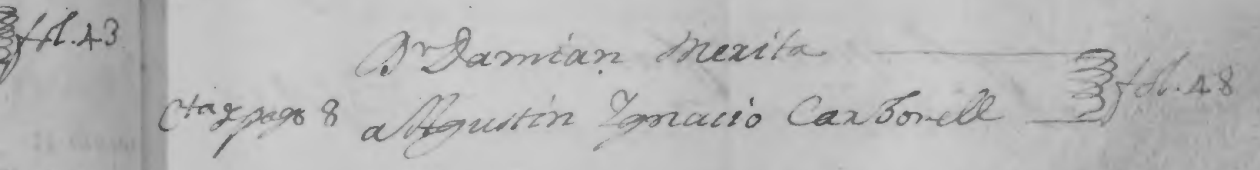 fol. 43
Dr Damian Merita
Cta y pago 8 a Agustin Ygnacio Carbonell
fol. 48